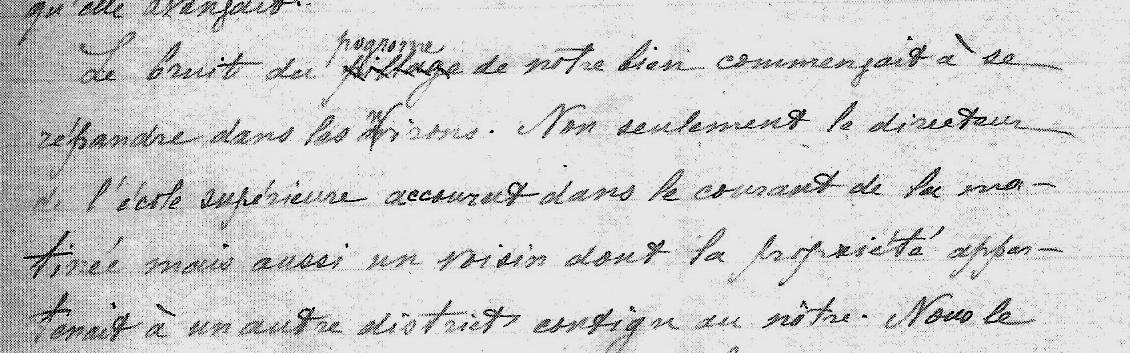 qu'elle avançait.
Le bruit du pogrome de notre bien commençait à se
répandre dans les environs. Non seulement le directeur
de l'école supérieure accourut dans le courant de la ma-
tinée mais aussi un voisin dont la propriété appar-
tenait à un autre district contigu au nôtre. Nous le